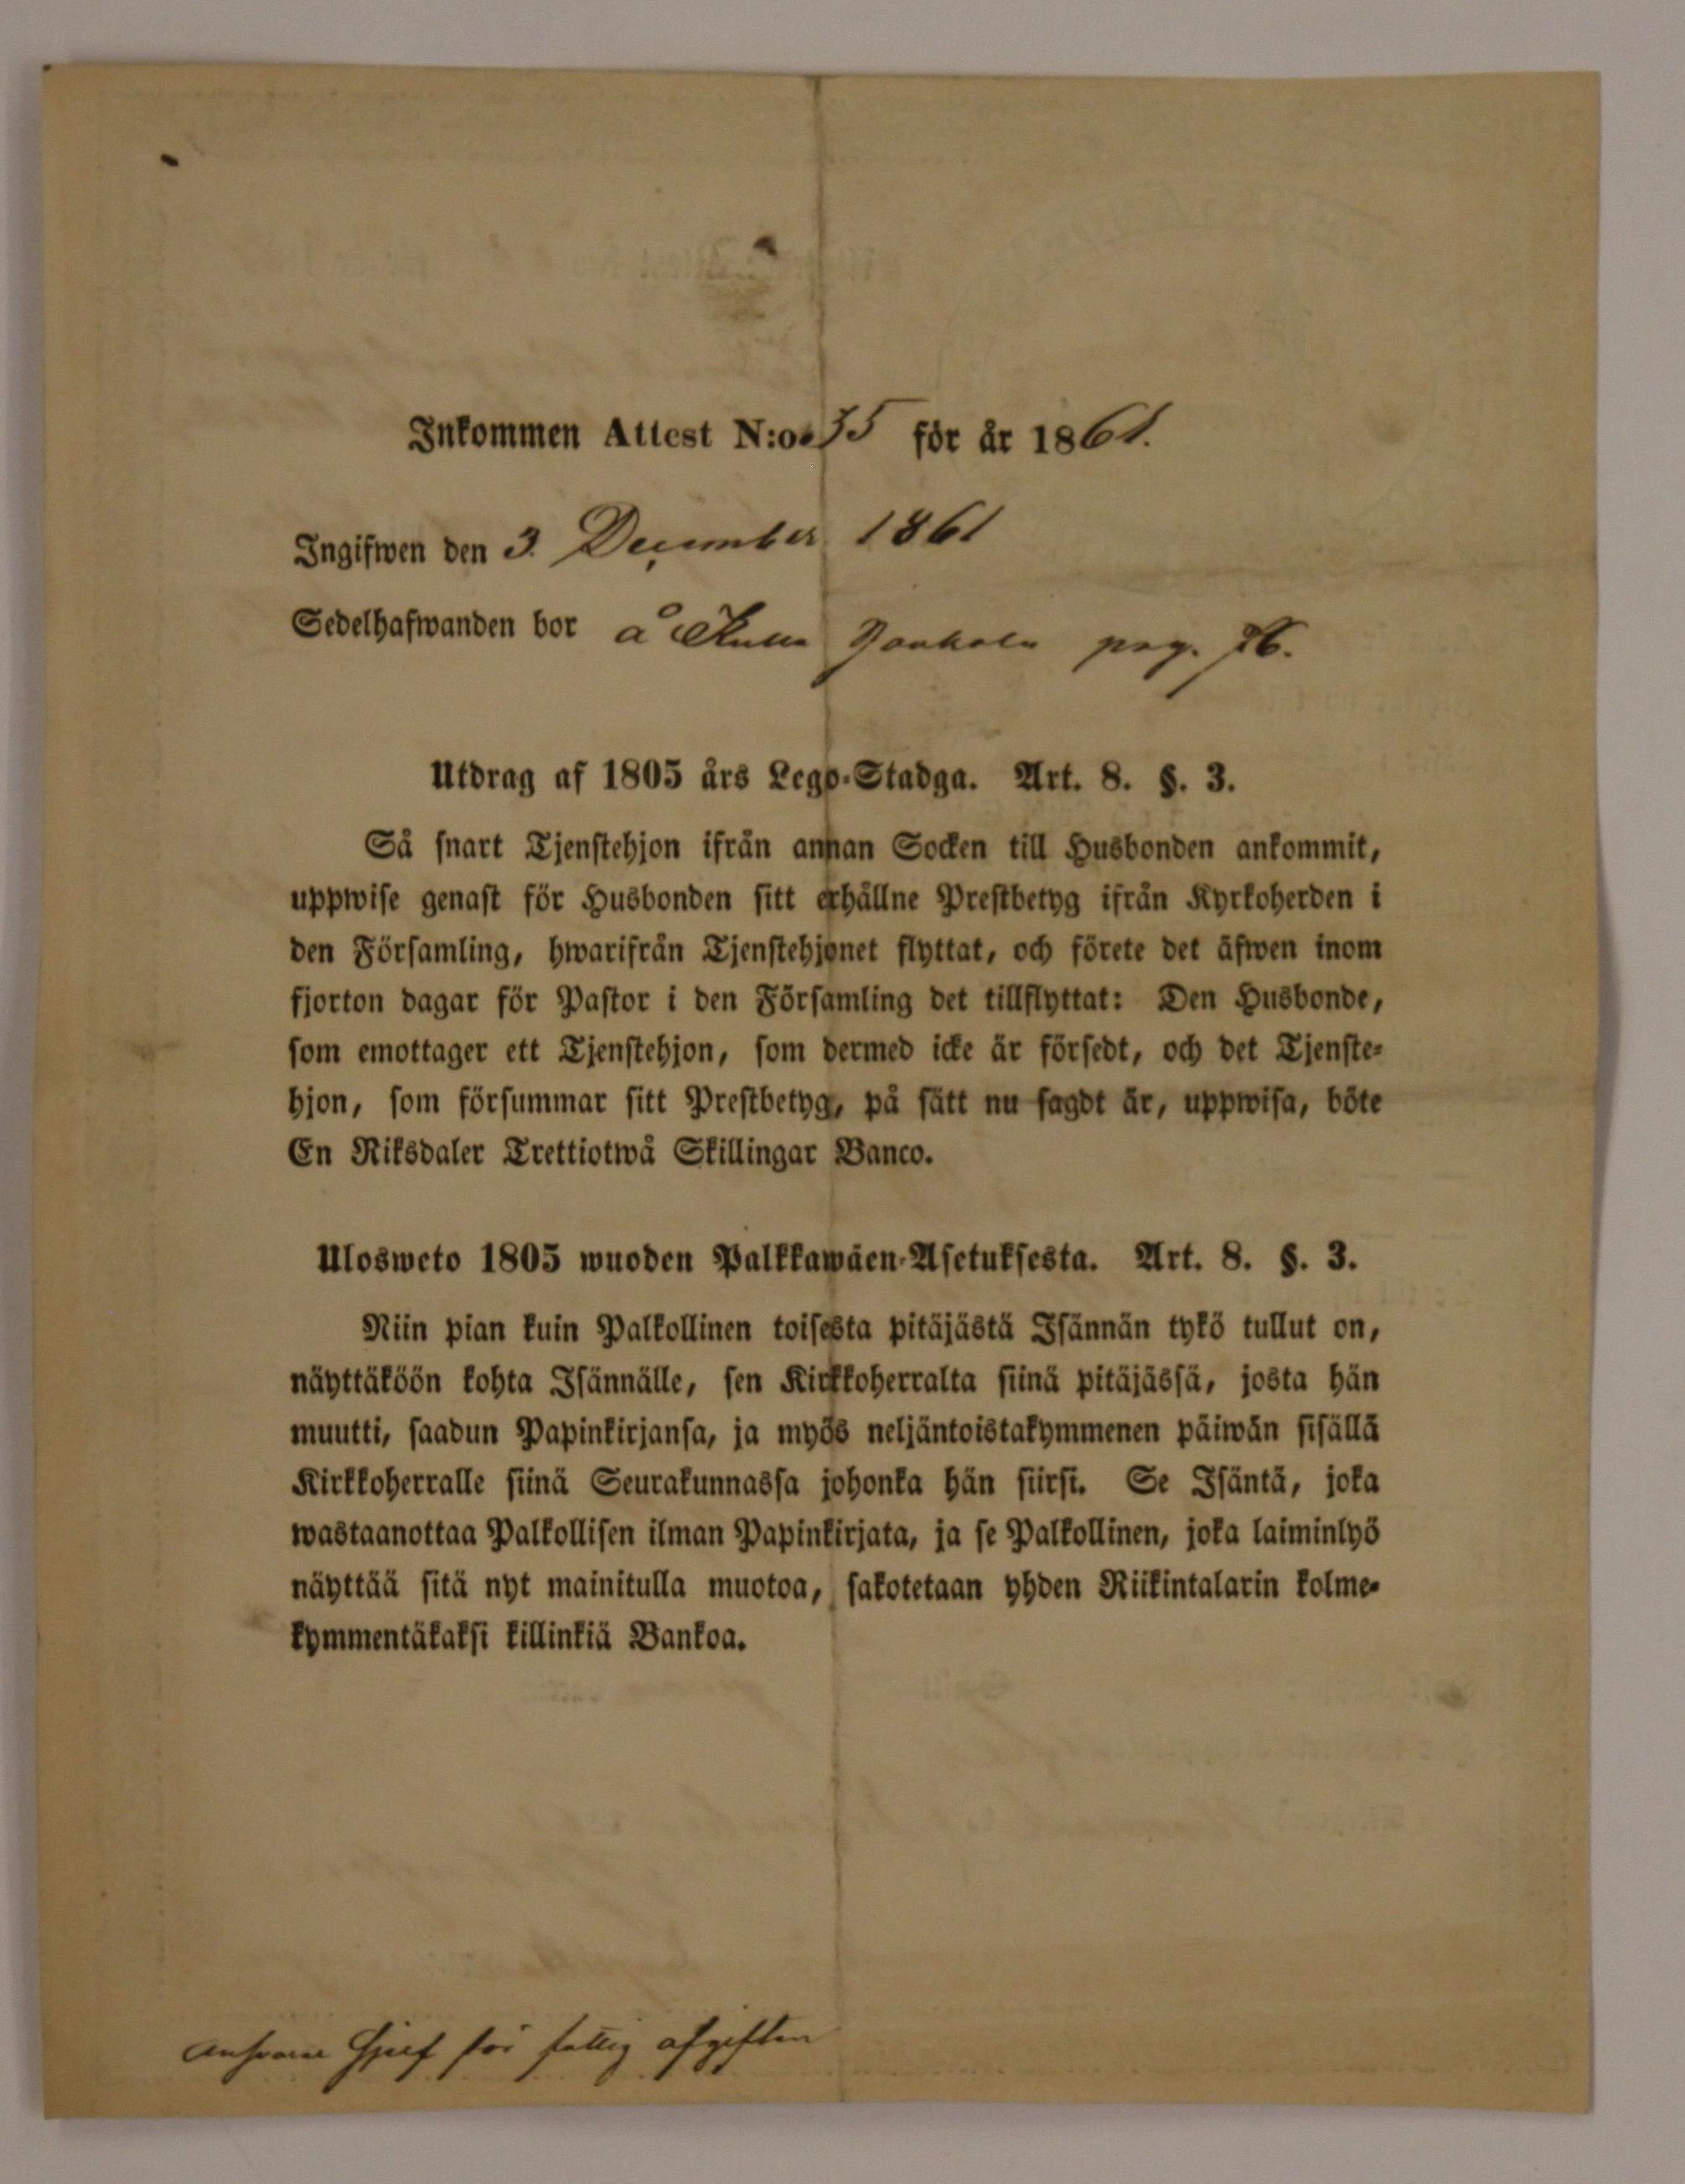 Inkommen Attest N:o 35 för år 1861.
Ingifwen den 3. December 1861
Sedelhafwanden bor å pag. 76.
Utdrag af 1805 års Lego-Stadga. Art. 8. §. 3.
Så snart Tjenstehjon ifrån annan Socken till Husbonden ankommit,
uppwise genast för Husbonden sitt erhållne Prestbetyg ifrån Kyrkoherden i
den Församling, hwarifrån Tjenstehjonet flyttat, och förete det äfwen inom
fjorton dagar för Pastor i den Församling det tillflyttat: Den Husbonde,
som emottager ett Tjenstehjon, som dermed icke är försedt, och det Tjenste-
hjon, som försummar sitt Prestbetyg, på sätt nu sagdt är, uppwisa, böte
En Riksdaler Trettiotwå Skillingar Banco.
Ulosweto 1805 wuoden Palkkawäen-Asetuksesta. Art. 8. §. 3.
Niin pian kuin Palkollinen toisesta pitäjästä Isännän tykö tullut on,
näyttäköön kohta Isännälle, sen Kirkkoherralta siinä pitäjässä, josta hän
muutti, saadun Papinkirjansa, ja myös neljäntoistakymmenen päiwän sisällä
Kirkkoherralle siinä Seurakunnassa johonka hän siirsi. Se Isäntä, joka
wastaanottaa Palkollisen ilman Papinkirjata, ja se Palkollinen, joka laiminlyö
näyttää sitä nyt mainitulla muotoa, sakotetaan yhden Riikintalarin kolme-
kymmentäkaksi killinkiä Bankoa.
ansvarar sjelf för fattig afgiften